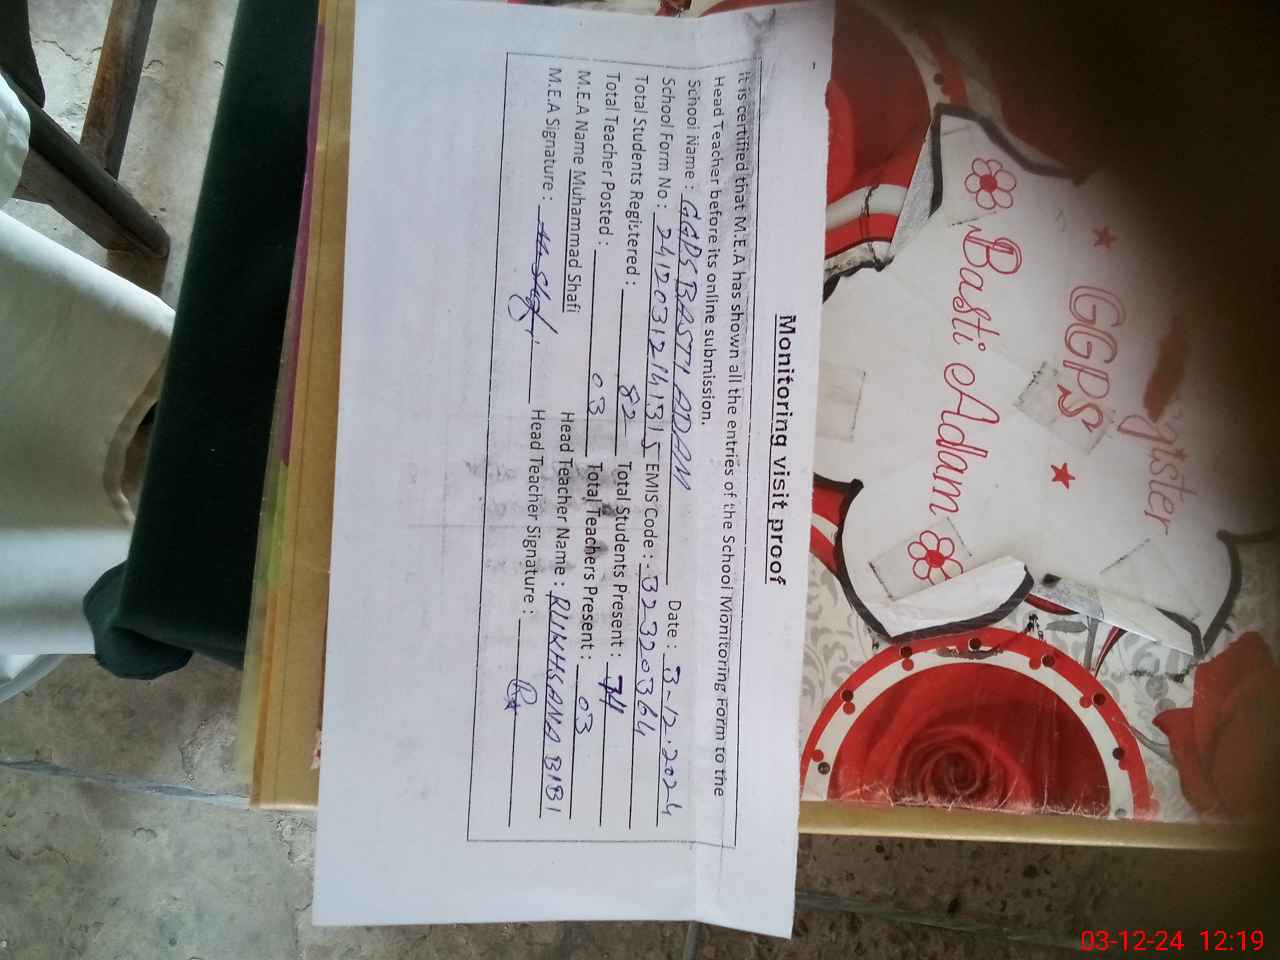 Monitoring visit proof
It is certified that M.E.A has shown all the entries of the School Monitoring Form to the
Head Teacher before its online submission.
School Name : GGPS BASTI ADAM Date : 3-12-2024
School Form No : 24120312141315 EMIS Code : 32320364
Total Students Registered : 82 Total Students Present : 74
Total Teacher Posted : 03 Total Teachers Present : 03
M.E.A Name Muhammad Shafi Head Teacher Name : RUKHSANA BIBI
M.E.A Signature : M. Shafi Head Teacher Signature :
gister
GGPS
Basti Adam
03-12-24 12:19